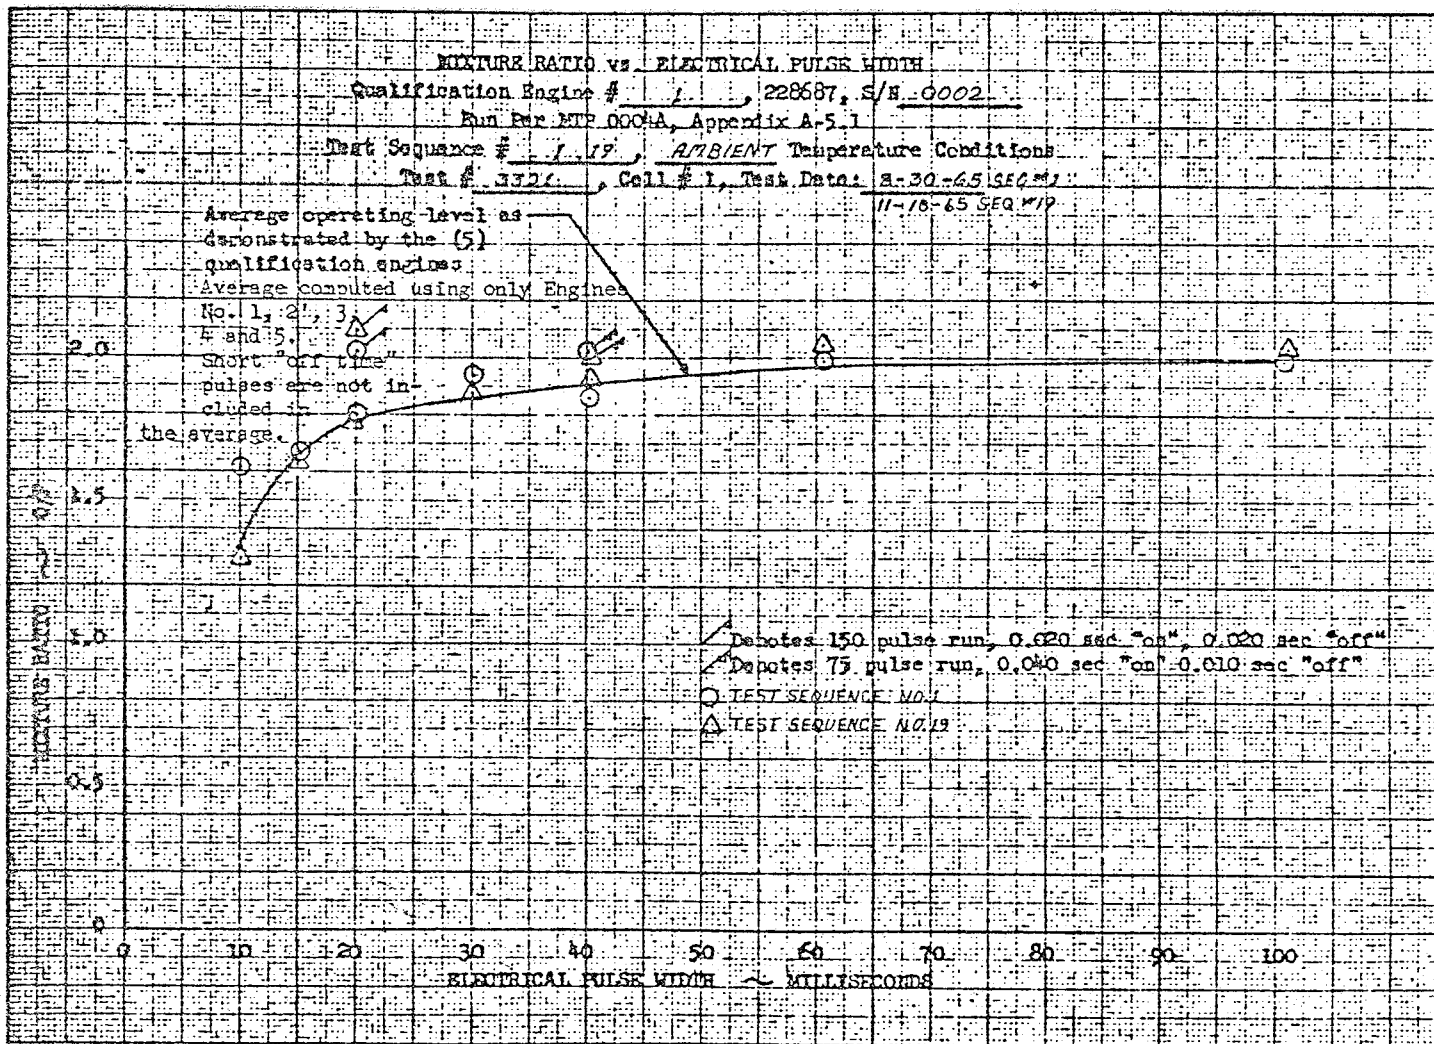 MIXTURE RATIO vs. ELECTRICAL PULSE WIDTH
Qualification Engine # 1, 228687, S/N 0002
Run Per MTP 0004A, Appendix A-5.1
Test Sequence # 1, 19, AMBIENT Temperature Conditions
Test #, Cell # 1, Test Date: 8-30-65 SEQ #1
11-18-65 SEQ #19
Average operating level as
demonstrated by the (5)
qualification engines
Average computed using only Engines
No. 1, 2', 3,
4 and 5.
Short "off time"
pulses are not in-
cluded in
the average.
2.0
1.5
1.0
0.5
0
MIXTURE RATIO ~ O/F
Denotes 150 pulse run, 0.020 sec "on", 0.020 sec "off"
Denotes 75 pulse run, 0.040 sec "on" 0.010 sec "off"
TEST SEQUENCE NO.1
TEST SEQUENCE NO.19
0 10 20 30 40 50 60 70 80 90 100
ELECTRICAL PULSE WIDTH ~ MILLISECONDS